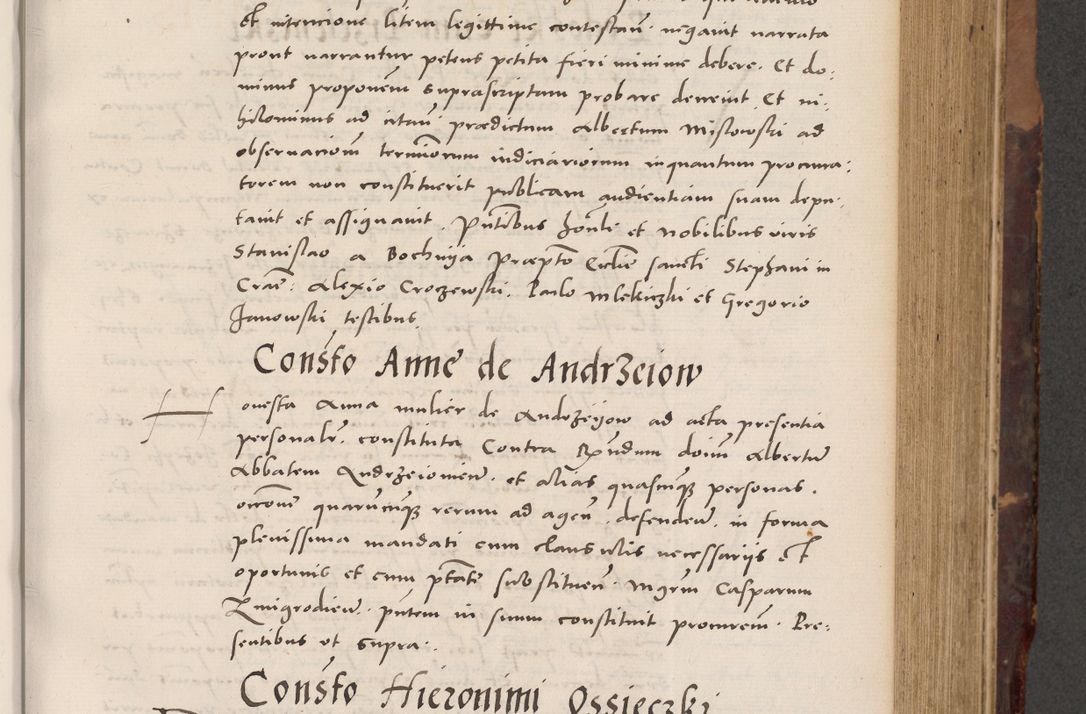 et intencione litem legittime contestan̄. negavit narrata
prout narrantur petens petita fieri minime debere. Et do:
minus proponem̄ suprascriptam probare decrevit. Et ni:
hilominus ad citan̄ prædictum Albertum Mislowski ad
observacionem̄ terminorum iudiciariorum inquantum procura:
torem non constituerit publicam audientiam suam depu:
tavit et assignavit. Pn̄tibus honbli et nobilibus viris
Stanislao a Bochnija Præpto Ecclie sancti Stephani in
Crac̄: Alexio Croczewski. Paulo Mlekiczki et Gregorio
Janowski testibus.
Consto Anne de Andrzeiow
Honesta Anna mulier de Andrzeijow ad acta presentia
personalr̄. constituta Contra Rn̄dum dom̄ Albertū
Abbatem Andrzeiovien̄. et alias quascunq̄ personas.
occone quarumcunq̄ rerum ad agen̄. defenden̄. in forma
plenissima mandati cum clausulis necessariis et
oportunis et cum ptāte substituen̄. Mgrm̄ Casparum
Zmigrodien̄. pn̄tem in suum constituit procurem̄. Pre:
sentibus ut supra.
Consto Hieronimi Ossieczki